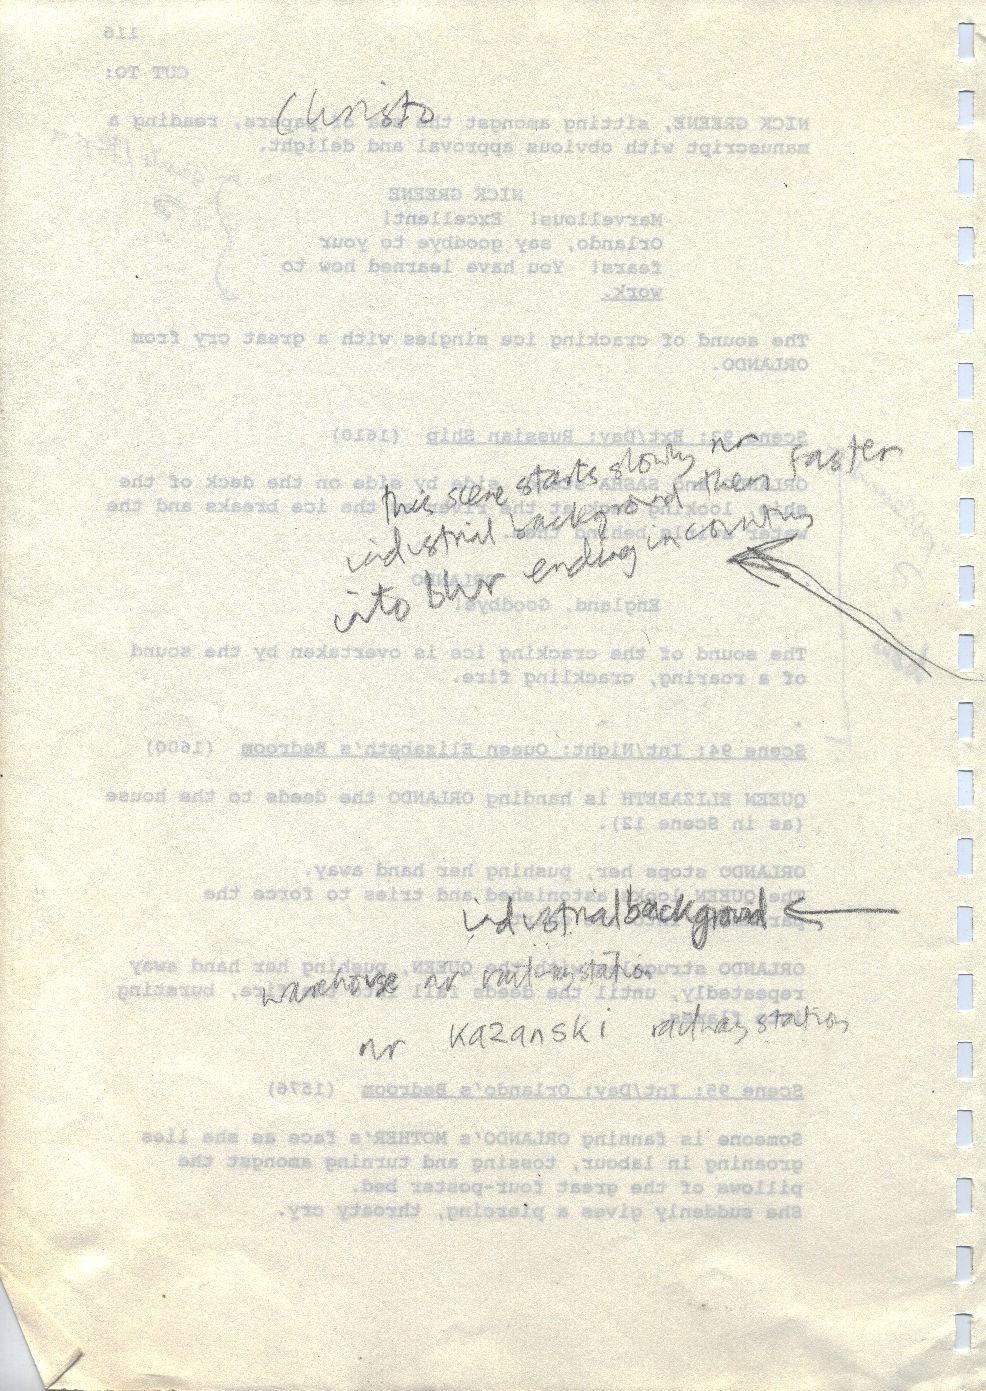 116
CUT TO:
Christo
NICK GREENE, sitting amongst the sea of papers, reading a
manuscript with obvious approval and delight.
NICK GREENE
Marvellous! Excellent!
Orlando, say goodbye to your
fears! You have learned how to
work.
The sound of cracking ice mingles with a great cry from
ORLANDO.
Scene 93: Ext/Day: Russian Ship (1610)
this scene starts slowly nr
industrial background then faster
into blur ending in country
ORLANDO and SASHA side by side on the deck of the
ship, looking at the river the ice breaks and the
water behind them.
ORLANDO
England, Goodbye!
The sound of the cracking ice is overtaken by the sound
of a roaring, crackling fire.
Scene 94: Int/Night: Queen Elizabeth's Bedroom (1600)
QUEEN ELIZABETH is handing ORLANDO the deeds to the house
(as in Scene 12).
ORLANDO stops her, pushing her hand away.
The QUEEN looks astonished and tries to force the
industrial background
ORLANDO struggles with the QUEEN, pushing her hand away
repeatedly, until the deeds fall into the fire, bursting
into flames.
warehouse nr railway station
nr Kazanski railway station
Scene 95: Int/Day: Orlando's Bedroom (1576)
Someone is fanning ORLANDO's MOTHER's face as she lies
groaning in labour, tossing and turning amongst the
pillows of the great four-poster bed.
She suddenly gives a piercing, throaty cry.